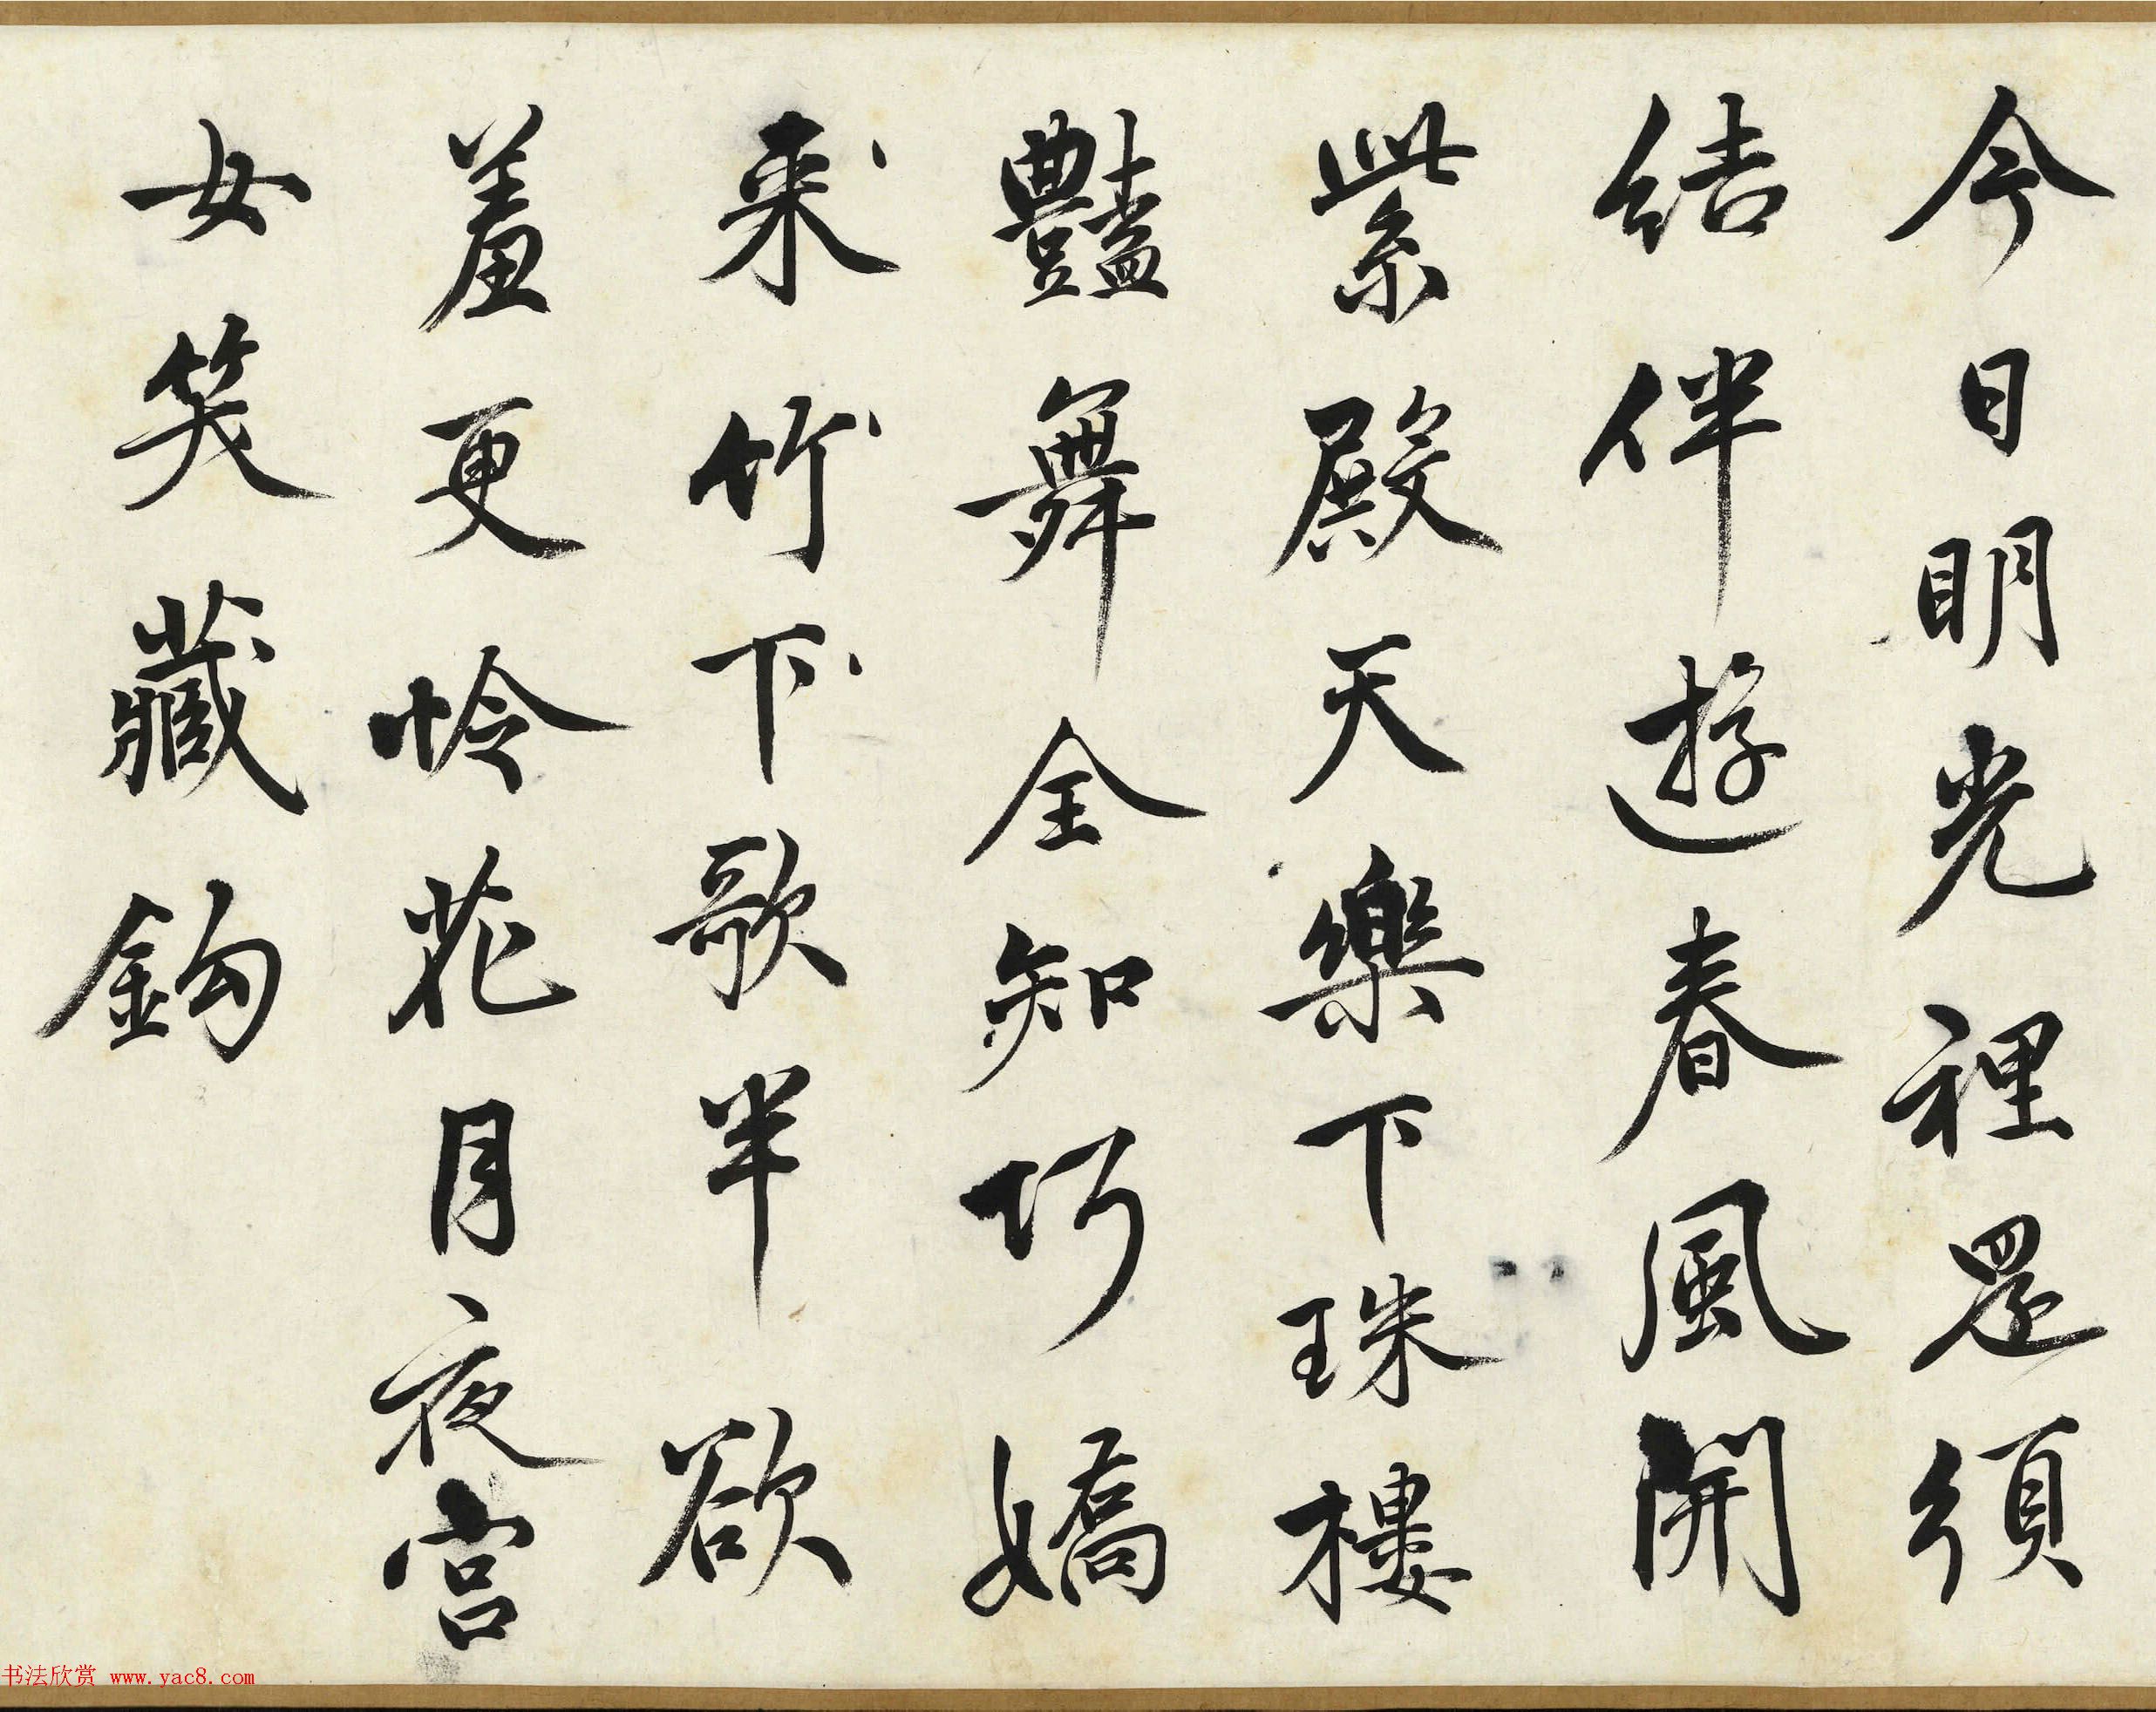 今日明光裡還須
結伴遊春風開
紫殿天樂下珠樓
豔舞全知巧嬌
来竹下歌半欲
羞更怜花月夜宮
女笑藏鈎
书法欣赏 www.yac8.com